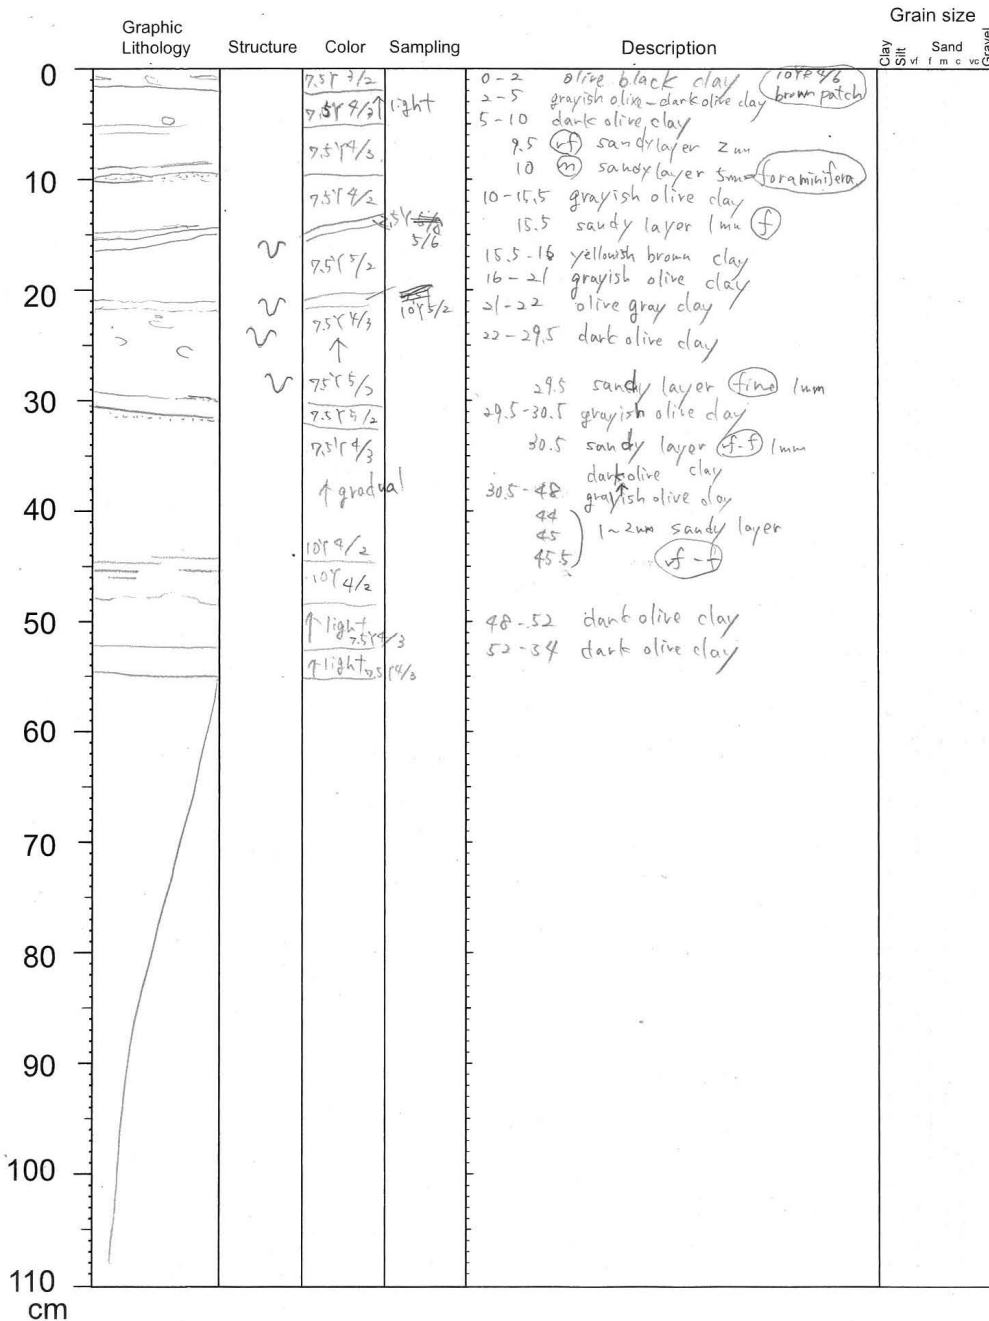 Graphic Lithology
Structure
Color
Sampling
Description
Grain size
Clay
Silt
vf f m c vc
Sand
Gravel
0
10
20
30
40
50
60
70
80
90
100
110
cm
7.5Y 3/2
7.5Y 4/3 ↑ light
7.5Y 4/3
7.5Y 4/2
5/6
7.5Y 5/2
10Y 5/2
7.5Y 4/3
↑
7.5Y 5/3
7.5Y 5/2
7.5Y 4/3
↑ gradual
10Y 4/2
10Y 4/2
↑ light 7.5Y 4/3
↑ light 7.5Y 4/3
0-2 olive black clay
10YR 4/6
brown patch
2-5 grayish olive-dark olive clay
5-10 dark olive clay
9.5 vf sandy layer 2mm
10 m sandy layer 5mm foraminifera
10-15.5 grayish olive clay
15.5 sandy layer 1mm f
15.5-16 yellowish brown clay
16-21 grayish olive clay
21-22 olive gray clay
22-29.5 dark olive clay
29.5 sandy layer fine 1mm
29.5-30.5 grayish olive clay
30.5 sandy layer vf-f 1mm
dark olive clay
30.5-48 ↑
grayish olive clay
44
45 1~2mm sandy layer
45.5 vf-f
48-52 dark olive clay
52-54 dark olive clay